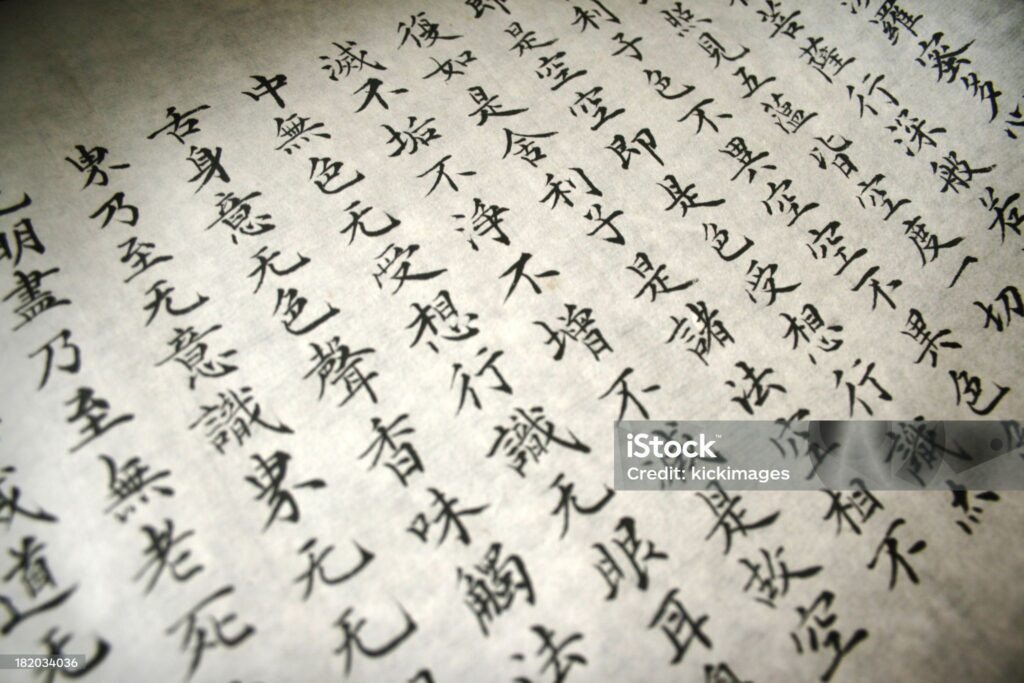 羅蜜多心
菩薩行深般若
照見五蘊皆空度一切
利子色不異空空不異色
即是空空即是色受想行識亦
復如是舍利子是諸法空相不
滅不垢不淨不增不減是故空
中無色无受想行識无眼耳
舌身意无色聲香味觸法
界乃至无意識界无无
明盡乃至無老死
道无
iStock
Credit: kickimages
182034036